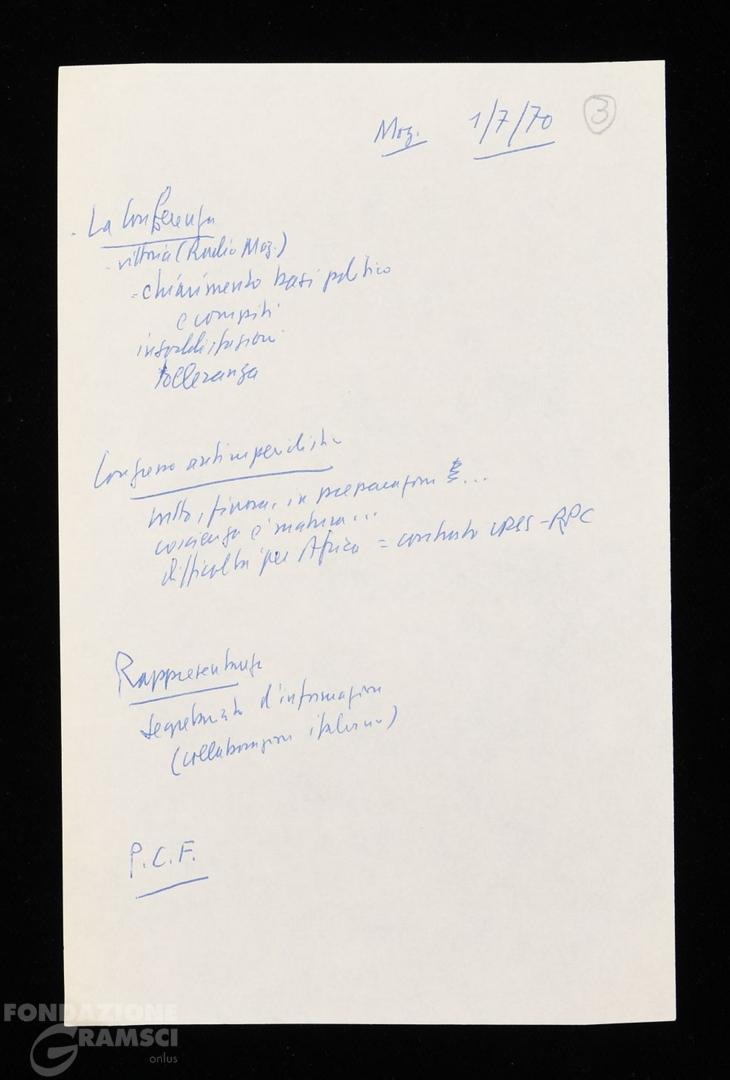 Moz. 1/7/70 3
- La Conferenza
- vittoria (Radio Moz.)
- chiarimento basi politico
e compiti
insoddisfazioni
tolleranza
Congresso antimperialista
tutto, finora, in preparazione ...
coscienza è matura...
difficoltà per Africa = contrasto URSS-RPC
Rappresentanze
Segretariato d'informazioni
(collaborazione italiana)
P.C.F.
FONDAZIONE
GRAMSCI
onlus